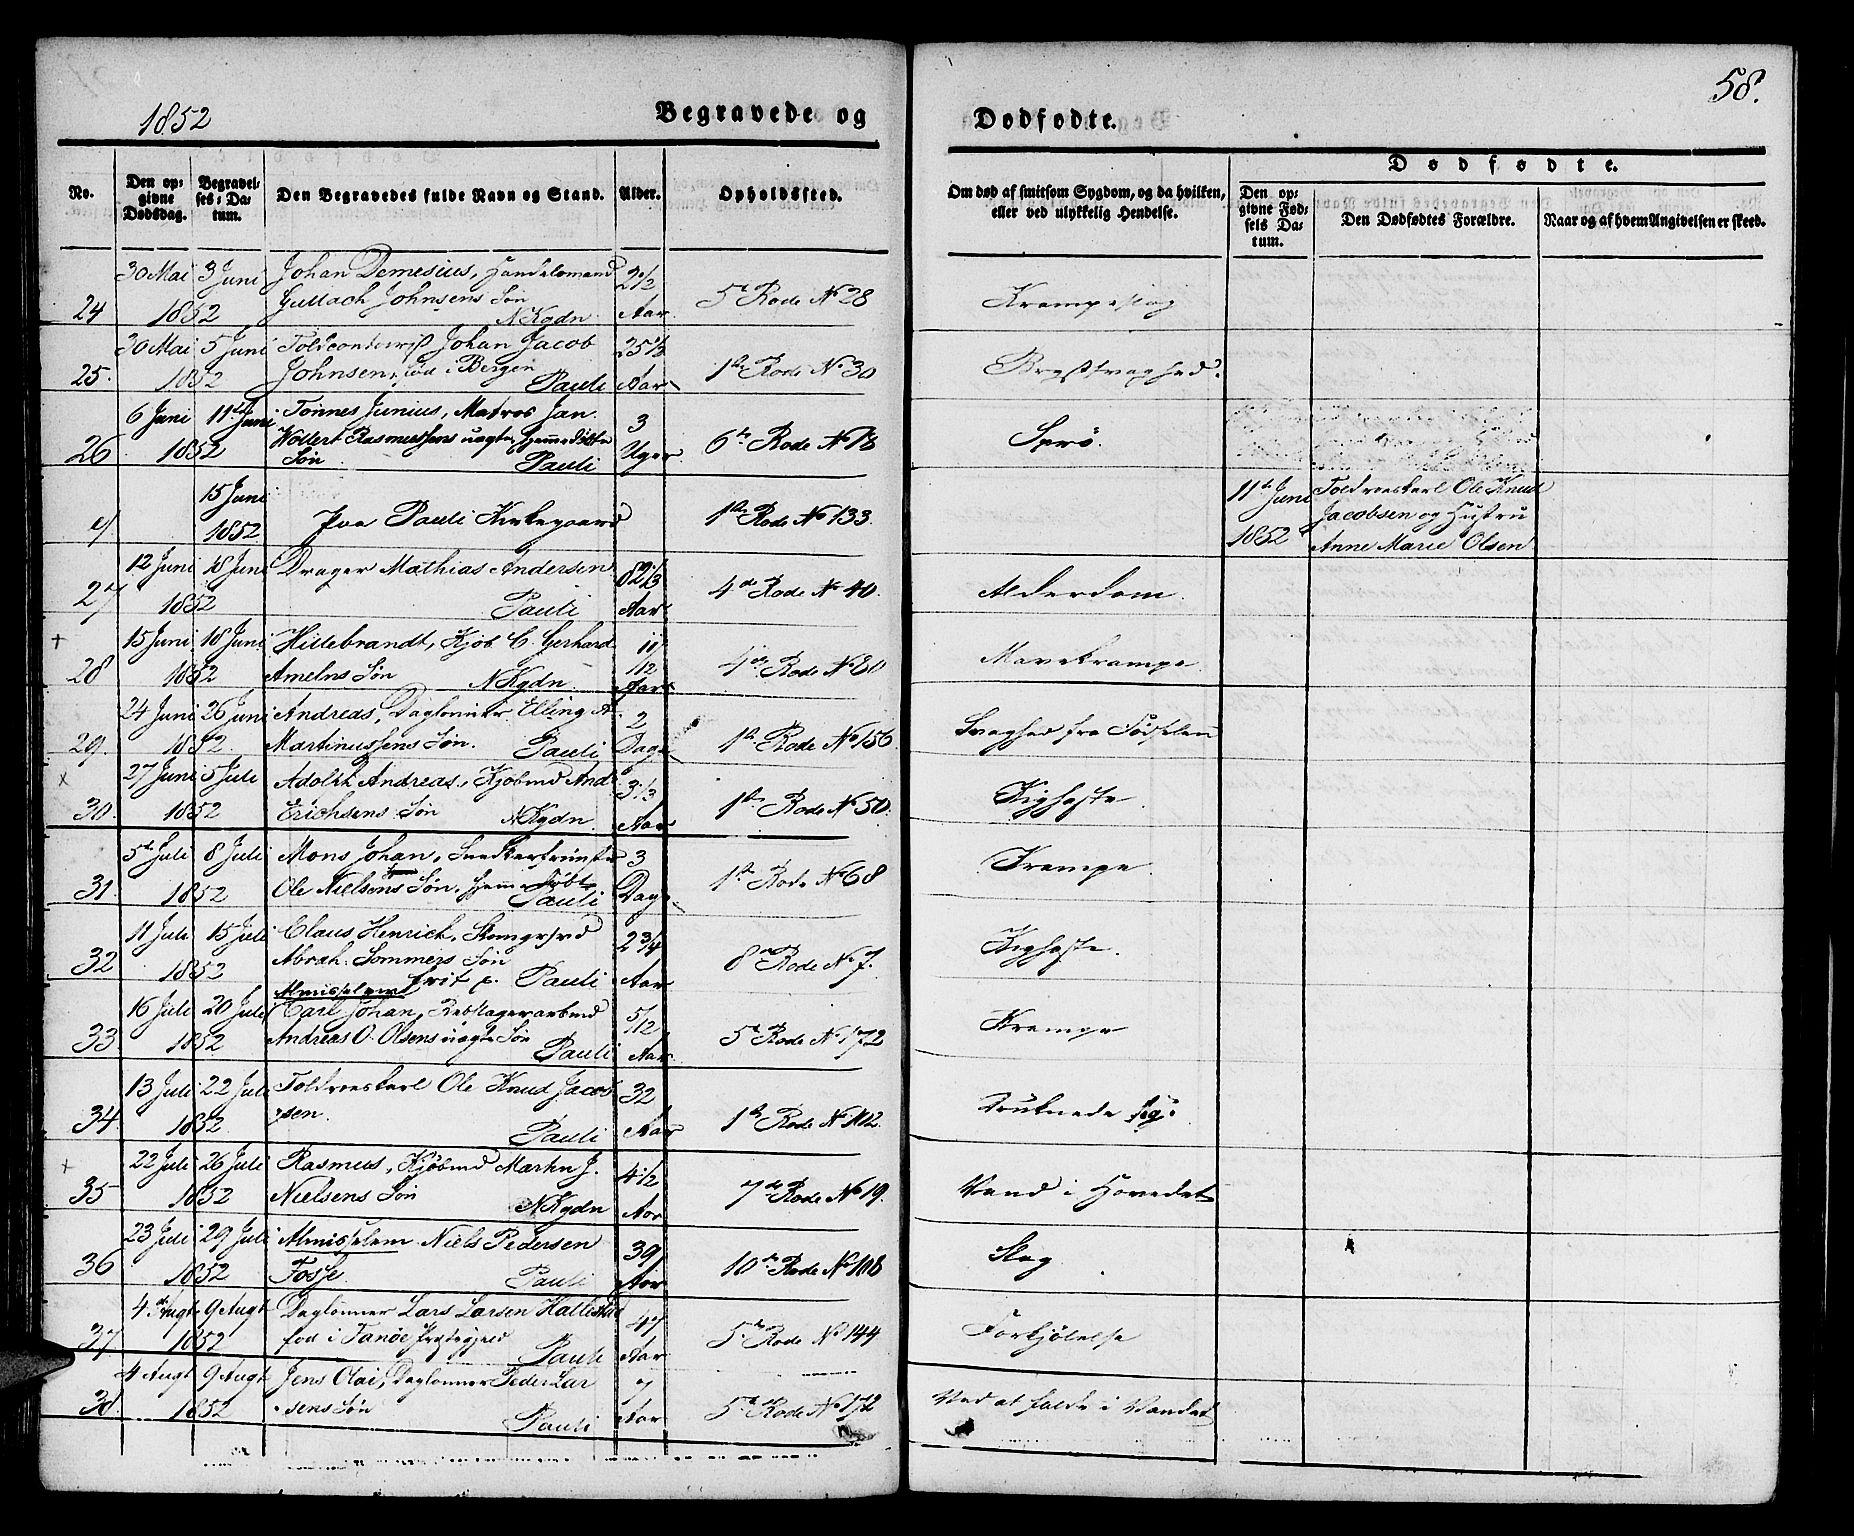 1852
Begravede og
Dødfødte.
58.
No.
Den opgivne Dødsdag.
Begravelses-Datum.
Den Begravedes fulde Navn og Stand.
Alder.
Opholdssted.
Om død af smitsom Sygdom, og da hvilken, eller ved ulykkelig Hendelse.
Dødfødte.
Den opgivne Fødsels Datum.
Den Dødfødtes Forældre.
Naar og af hvem Angivelsen er skeed.
30 Mai 3 Juni Johan Demesius, Handelsmand 2 1/2
24 1852 Gullach Johnsens Søn N Kgdn. Aar. 5te Rode No 28 Krampeslag
30 Mai 5 Juni Toldcontorist Johan Jacob 25 1/3
25. 1852 Johnsen, fød i Bergen Pauli Aar 1ste Rode No 30 Brystsvaghed.
6 Juni 11te Juni Tønnes Junius, Matros Jan 3
26 1852 Wollert Rasmussens uægte hjemmedøbte Uger 6te Rode No 18
Søn. Pauli
15 Juni 11te Juni Toldroeskarl Ole Knud
4 1852 Paa Pauli Kirkegaard 1ste Rode No 133. 1852 Jacobsen og Hustru
Anne Marie Olsen
12 Juni 18 Juni Drager Mathias Andersen 82 1/3
27 1852 Pauli Aar 4de Rode No 40. Alderdom.
+ 15 Juni 18 Juni Hillebrandt, Kjøb. C. Gerhard 11/12
28 1852 Amelns Søn N Kgdn. Aar 4de Rode No 80 Mavekrampe.
24 Juni 26 Juni Andreas, Daglønner Elling A. 2
29. 1852. Martinussens Søn. Pauli Dage 1ste Rode No 156. Svaghed fra Fødselen
x 27 Juni 5 Juli Adolph Andreas, Kjøbmd And. 3 1/3
30. 1852 Erichsens Søn N Kgdn. Aar 1ste Rode No 50. Kighoste.
5te Juli 8 Juli Mons Johan, Snedker 3
31. 1852 Ole Nielsens Søn, hjemmedøbt Pauli Dage 1ste Rode No 68 Krampe.
11 Juli 15 Juli Claus Henrich, 2 3/4
32 1852 Abrah. Sommers Søn Aar 8de Rode No 7. Kighoste.
frit p. Pauli
Almisselem
16 Juli 20 Juli Carl Johan, Rebslagerarbmd 5/12
33 1852 Andreas O. Olsens uægte Søn Pauli Aar 5te Rode No 172 Krampe
13 Juli 22 Juli Toldroeskarl Ole Knud Jacob 32
34 1852. sen. Pauli Aar 1ste Rode No 112. Druknede sig.
+ 22 Juli 26 Juli Rasmus, Kjøbmd Martin J. 4 1/2
35 1852 Nielsens Søn N Kgdn Aar 7de Rode No 19. Vand i Hovedet
23 Juli 29 Juli Almisselem Niels Pedersen 39
36 1852 Fosse Pauli Aar 10de Rode No 108 Slag
4de Augt 9 Augt Daglønner Lars Larsen 47
37 1852 fød i Pauli Aar 5te Rode No 144 Forkjølelse
4 Augt 9 Augt Jens Olai, Daglønner Peder Lar 7
38. 1852 sens Søn Pauli Aar 5te Rode No 172 Ved at falde i Vandet